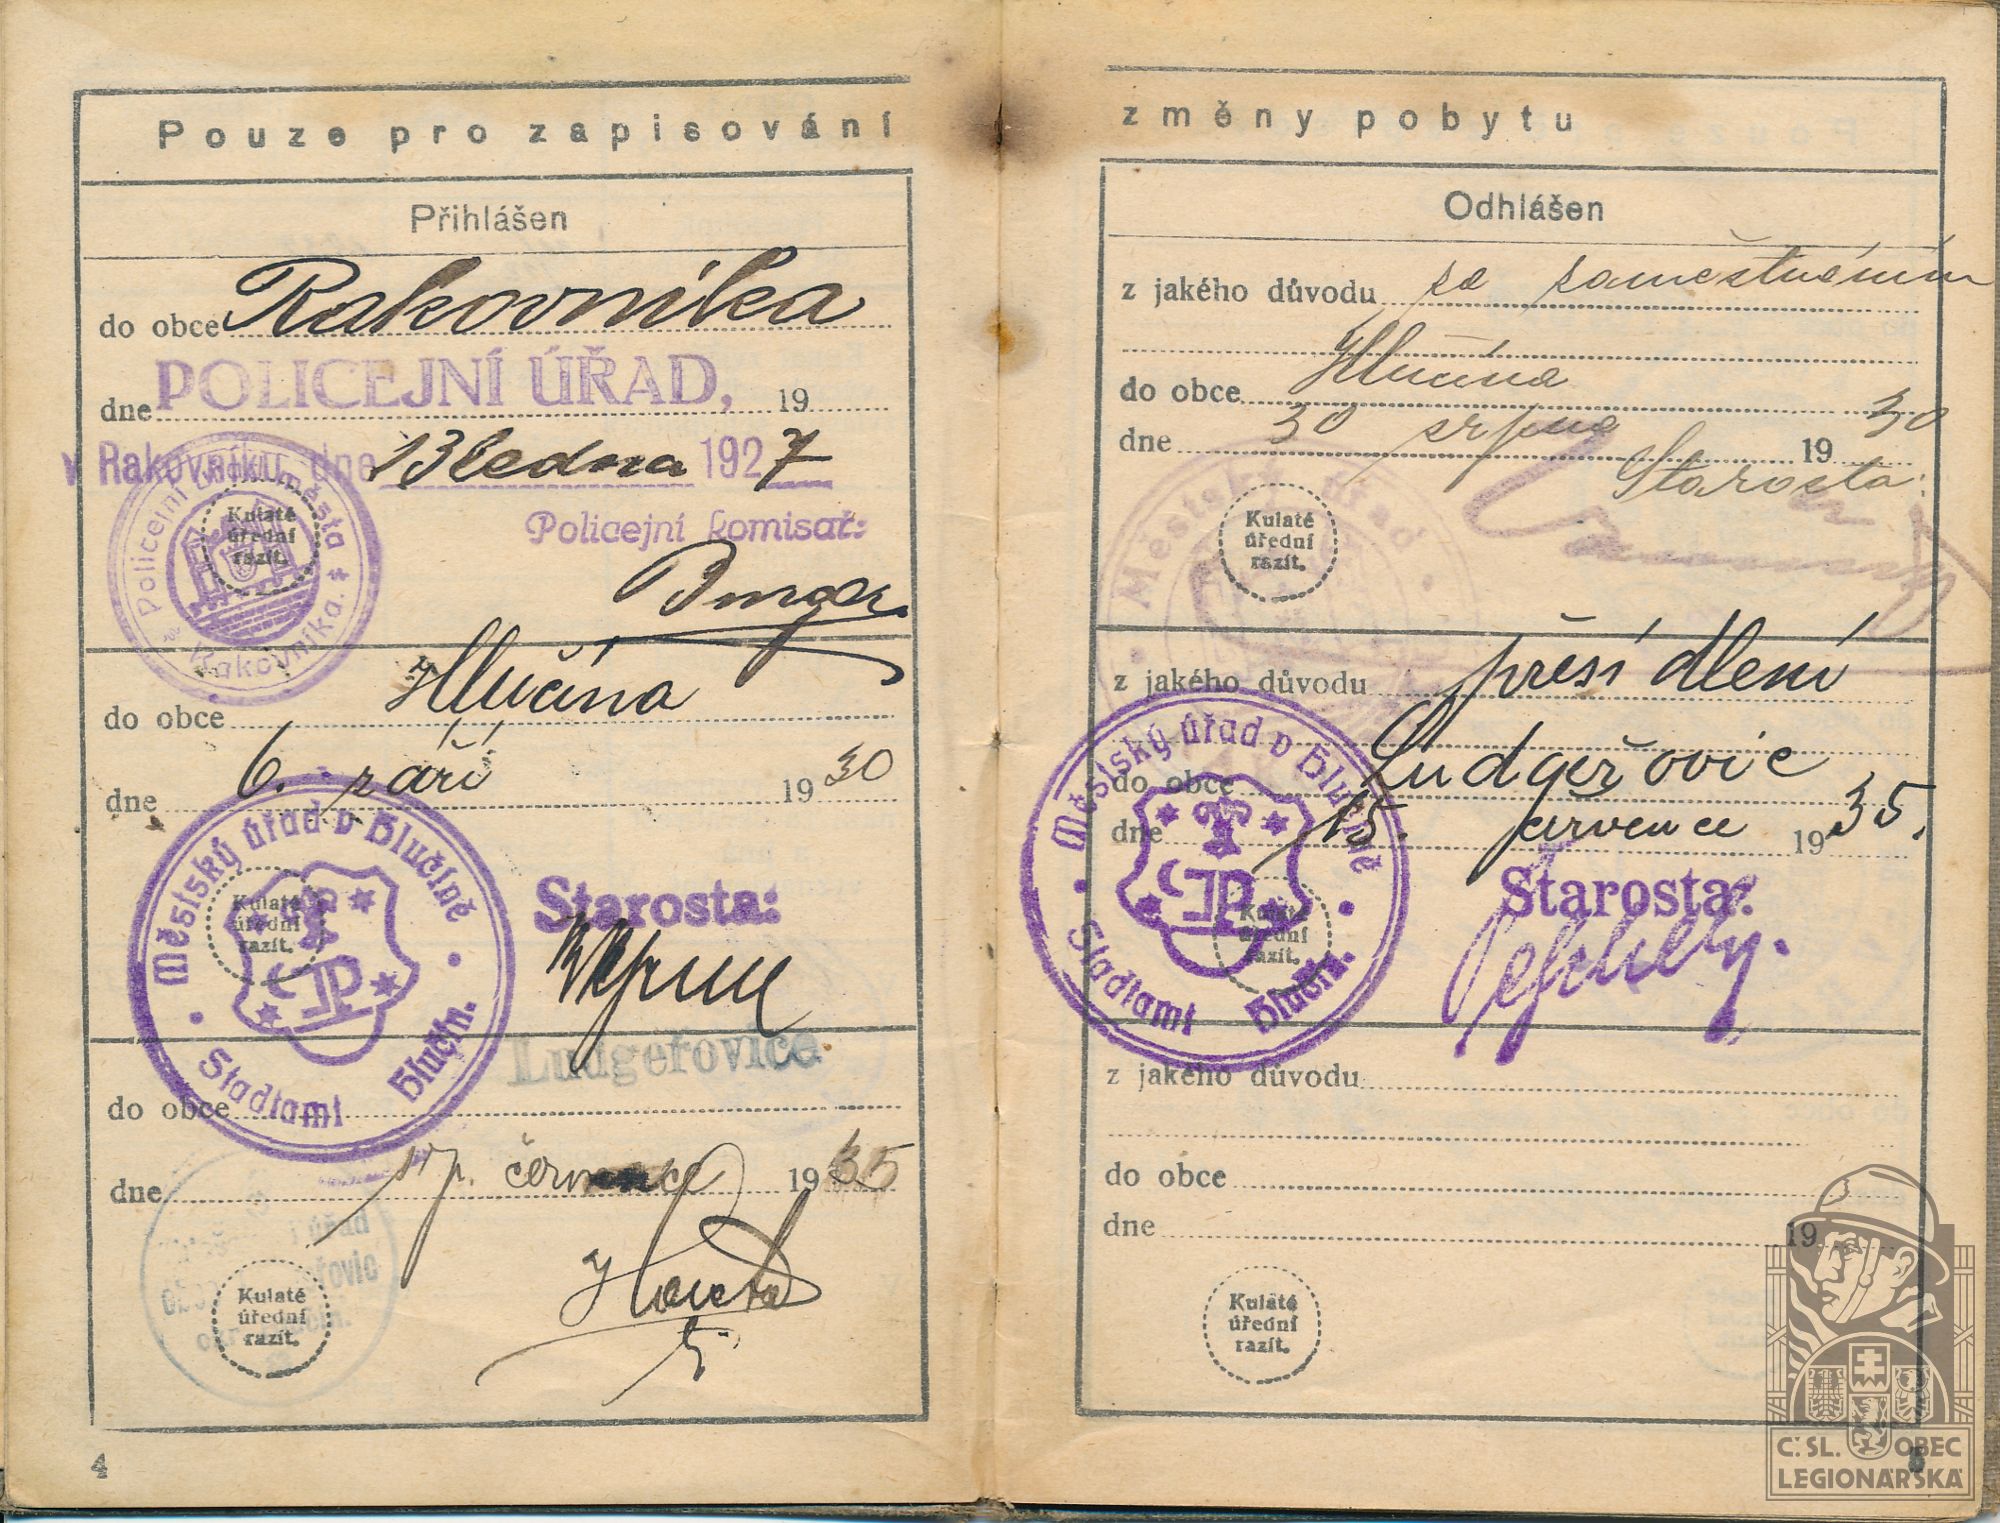 Pouze pro zapisování
Přihlášen
do obce Rakovníka
POLICEJNÍ ÚŘAD,
dne 19
v Rakovníku dne 13 ledna 1927
Policejní komisař:
Policejní úřad města
Rakovníka.
Kulaté
úřední
razít.
do obce Hlučína
dne 6. září 1930
Městský úřad v Hlučíně
Stadtamt Hlučín.
Kulaté
úřední
razít.
Starosta:
Ludgeřovice
do obce
dne 17. července 1935
úřad
Kulaté
úřední
razít.
4
změny pobytu
Odhlášen
z jakého důvodu za zaměstnáním
do obce Hlučína
dne 30 srpna 1930
Starosta:
Městský úřad
Kulaté
úřední
razít.
z jakého důvodu přesídlení
do obce Ludgeřovic
dne 15. července 1935.
Městský úřad v Hlučíně
Stadtamt Hlučín.
Kulaté
úřední
razít.
Starosta:
z jakého důvodu
do obce
dne 19
Kulaté
úřední
razít.
Č. SL. OBEC
LEGIONÁŘSKÁ